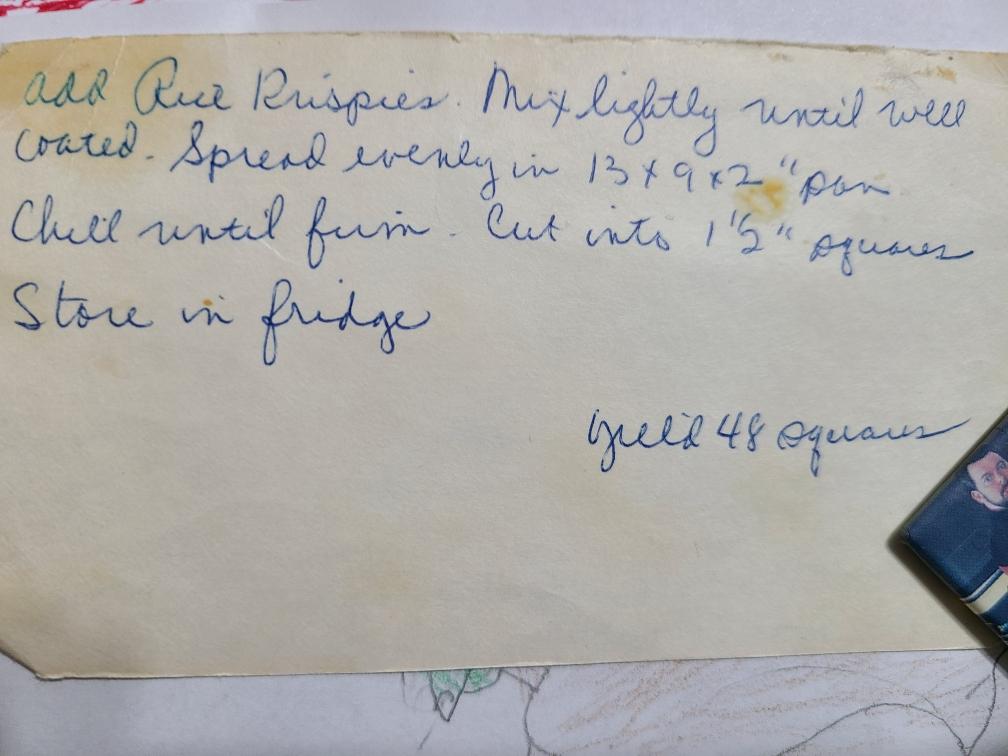 add Rice Krispies. Mix lightly until well
coated. Spread evenly in 13 x 9 x 2" pan
Chill until firm. Cut into 1 1/2" squares
Store in fridge
yield 48 squares